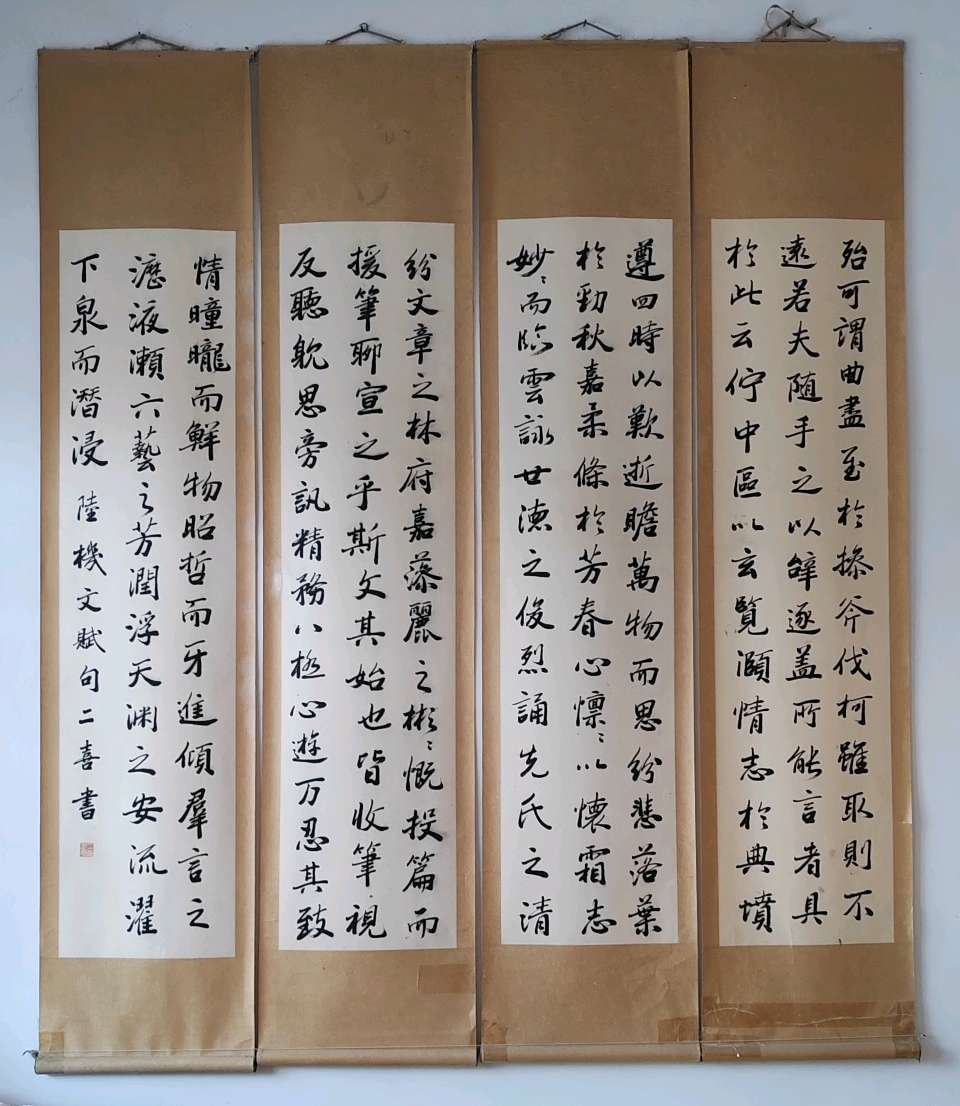 殆可謂曲盡至於操斧伐柯雖取則不
遠若夫随手之以辤逐盖所能言者具
於此云佇中區以玄覽頤情志於典墳
遵四時以歎逝瞻萬物而思紛悲落葉
於勁秋嘉柔條於芳春心懍〻以懷霜志
妙〻而臨雲詠廿德之俊烈誦先氏之清
紛文章之林府嘉藻麗之彬〻慨投篇而
援筆聊宣之乎斯文其始也皆收筆視
反聽躭思旁訊精務八極心遊万忍其致
情曈曨而鮮物昭晢而牙進傾羣言之
瀝液瀨六藝之芳潤浮天渊之安流濯
下泉而潛浸 陸機文賦句二喜書